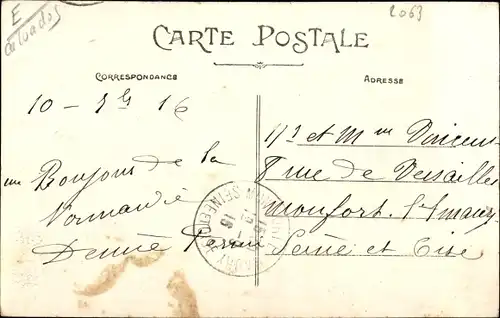 E
Calvados
2063
CARTE POSTALE
CORRESPONDANCE
ADRESSE
10 - 16
un Bonjour de la
Normandie
Denise
Mr et Mme Vincent
rue de Versailles
Monfort l'Amaury
Seine et Oise